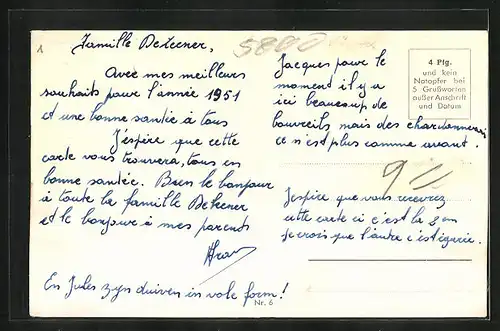 1
Famille Dekeener,
5800
Avec mes meilleurs
souhaits pour l'année 1951
et une bonne santée à tous
J'éspère que cette
carte vous trouvera, tous en
bonne santée. Bien le bonjour
à toute la famille Dekeener
et le bonjour à mes parents
En Jules zyn duiven in vole form!
Jacques pour le
moment il y a
ici beaucoup de
bouvreils, mais des chardonnerets
ce n'est plus comme avant.
911
Jespère que vous recevrez
cette carte ci c'est la 2em
je crois que l'autre c'est égarée.
4 Pfg.
und kein
Notopfer bei
5 Grußworten
außer Anschrift
und Datum
Nr. 6